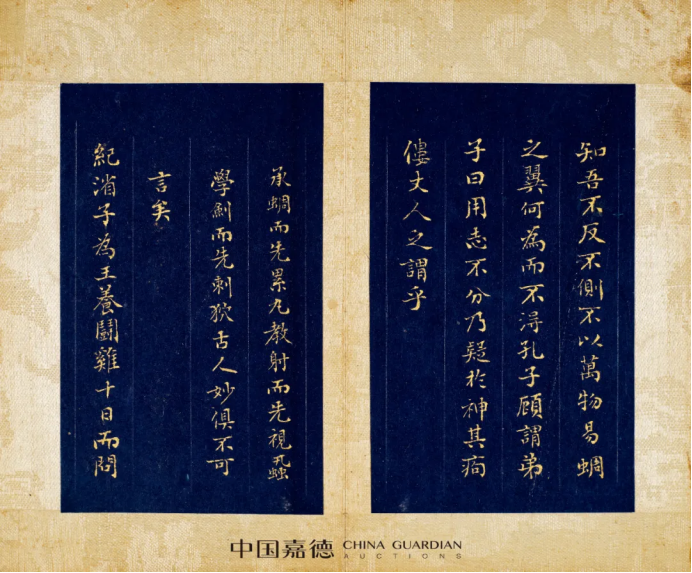 知吾不反不側不以萬物易蜩
之翼何為而不得孔子顧謂弟
子曰用志不分乃疑於神其痀
僂丈人之謂乎
承蜩而先累丸教射而先視蝨
學劍而先刺狄古人妙俱不可
言矣
紀渻子為王養鬭雞十日而問
中国嘉德 CHINA GUARDIAN
AUCTIONS